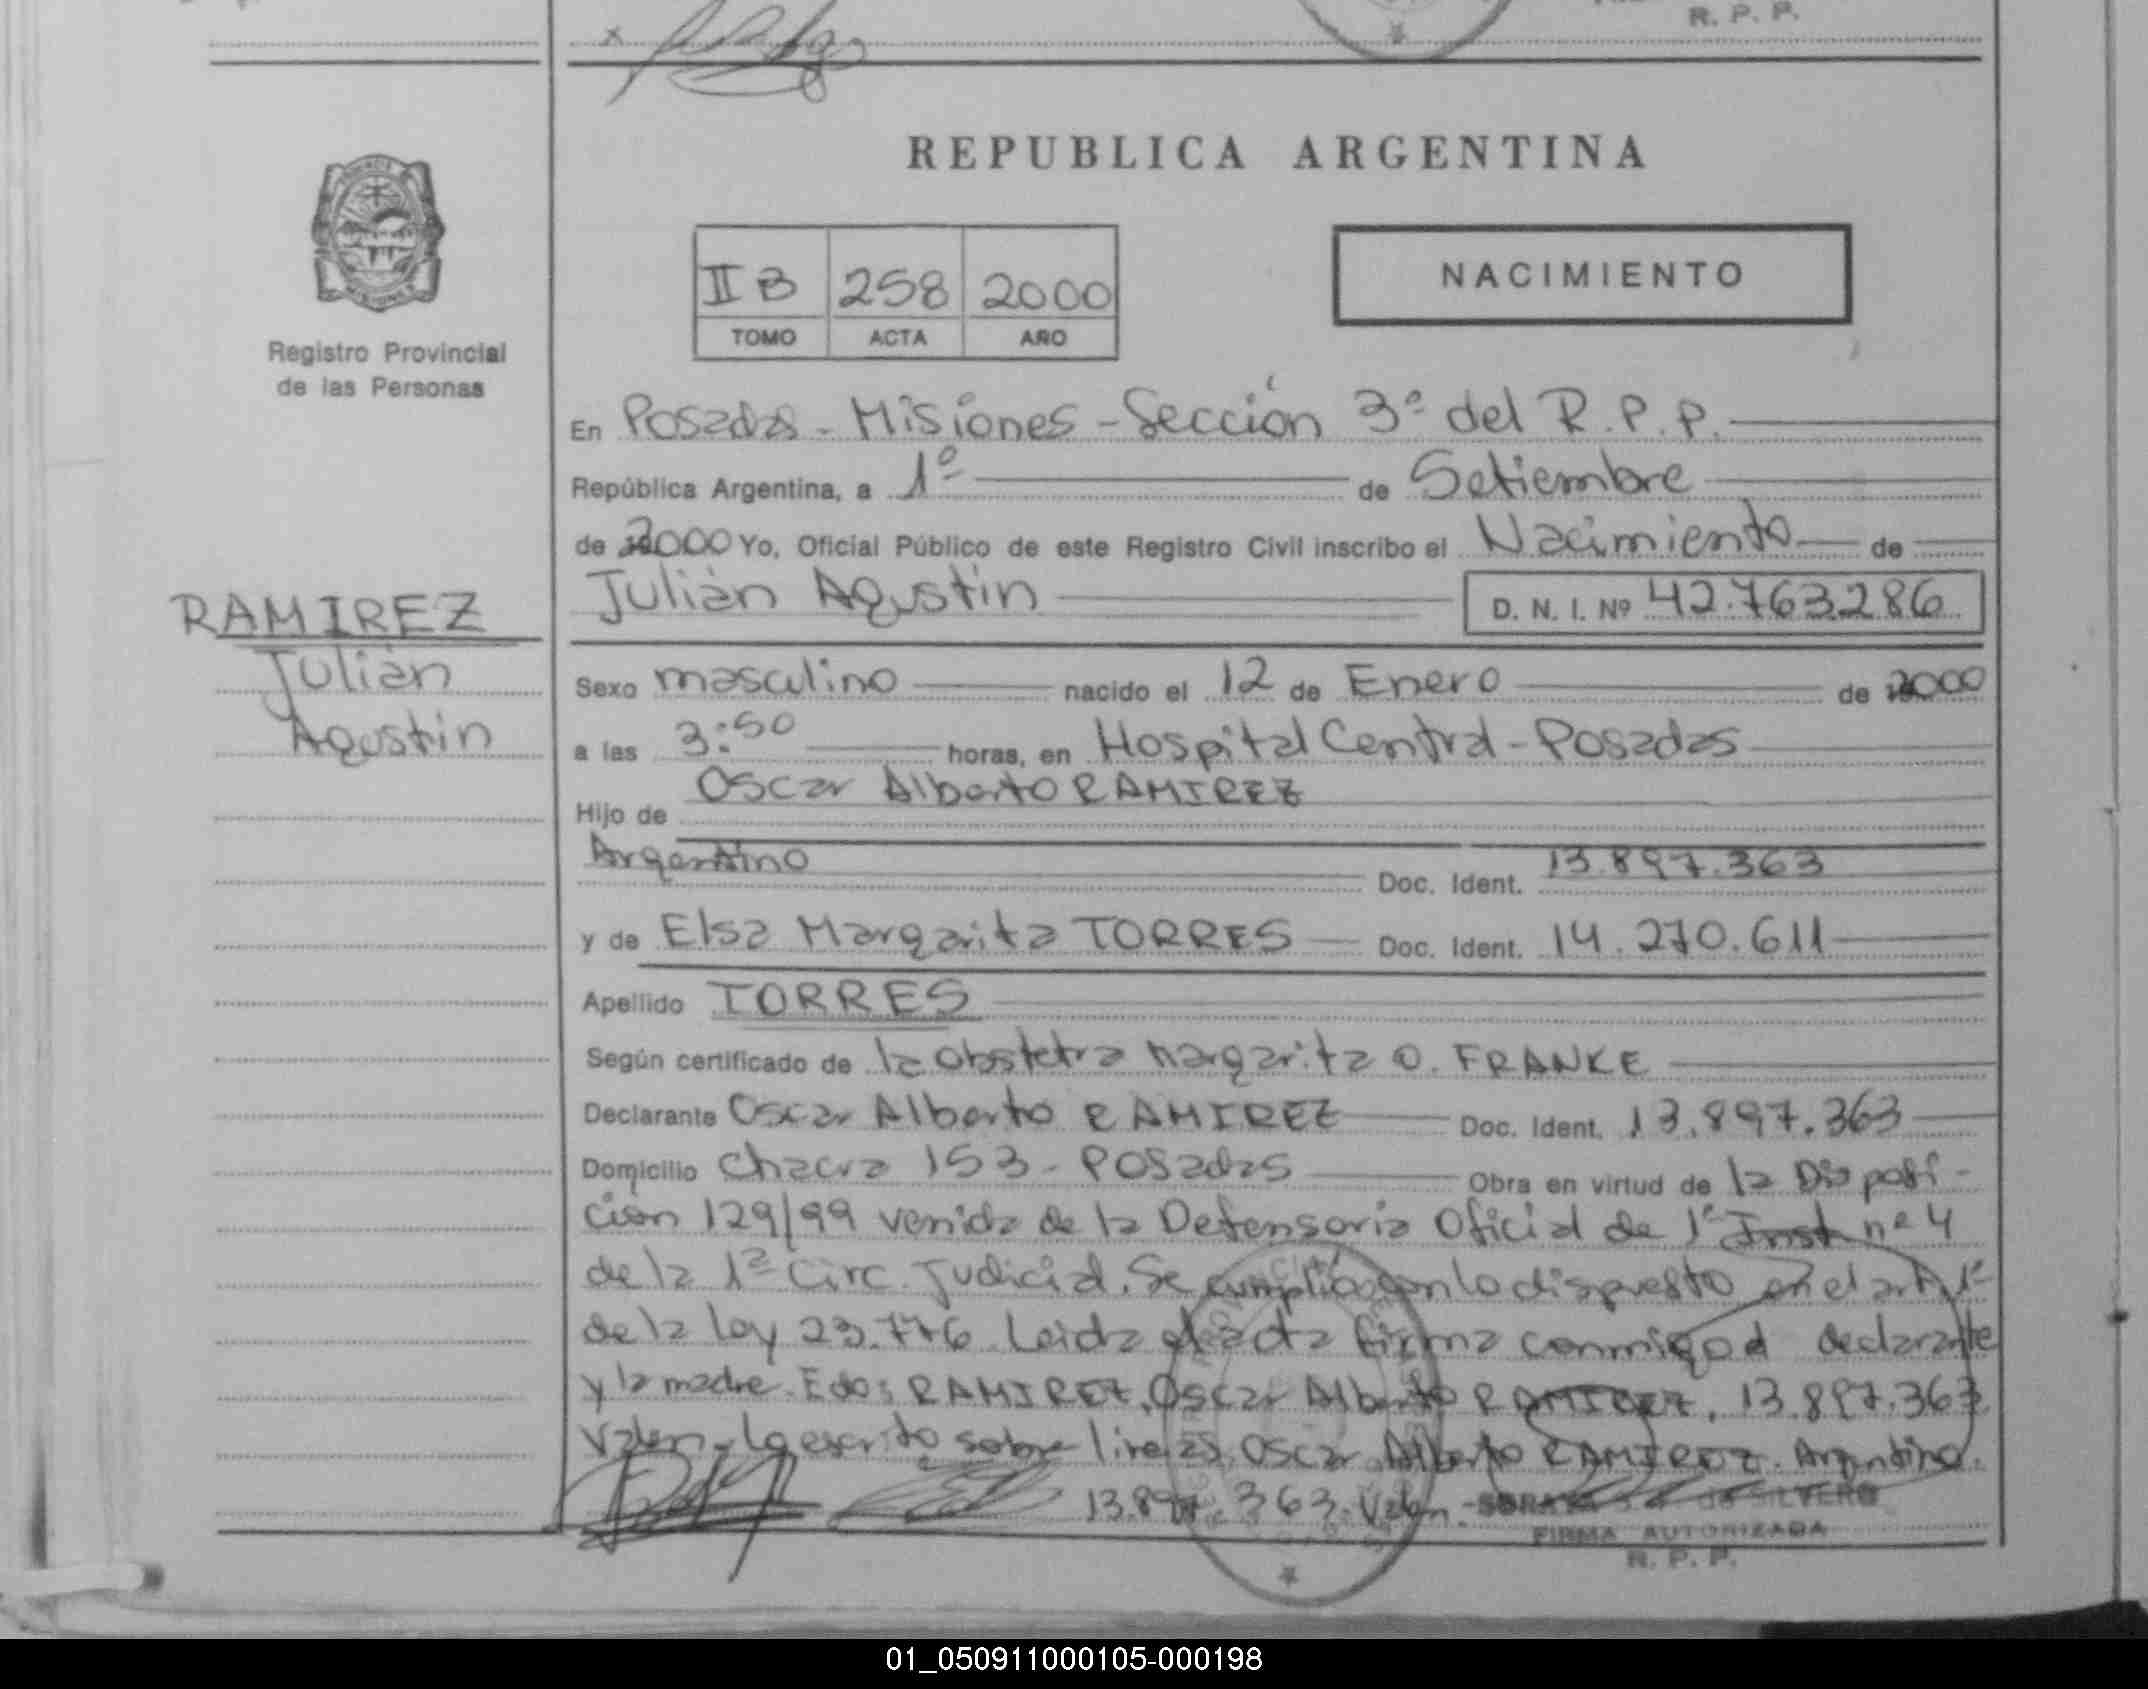 R. P. P.
REPUBLICA ARGENTINA
II B 258 2000
TOMO ACTA AÑO
NACIMIENTO
Registro Provincial
de las Personas
En Posadas - Misiones - Sección 3º del R.P.P.
República Argentina, a 1º de Setiembre
de 2000 Yo, Oficial Público de este Registro Civil inscribo el Nacimiento de
Julián Agustín D. N. I. Nº 42.763.286
RAMIREZ
Julián
Agustín
Sexo masculino nacido el 12 de Enero de 2000
a las 3:50 horas, en Hospital Central - Posadas
Oscar Alberto RAMIREZ
Hijo de
Argentino Doc. Ident. 13.897.363
y de Elsa Margarita TORRES Doc. Ident. 14.270.611
Apellido TORRES
Según certificado de la obstetra Margarita O. FRANKE
Declarante Oscar Alberto RAMIREZ Doc. Ident. 13.897.363
Domicilio Chacra 153 - Posadas Obra en virtud de la Disposi-
ción 129/99 venida de la Defensoria Oficial de 1º Inst nº 4
de la 1ª Circ. Judicial. Se cumplió con lo dispuesto en el art 1º
de la ley 23.776. Leida el acta firma conmigo el declarante
y la madre. Edo: RAMIREZ, Oscar Alberto RAMIREZ, 13.897.363
Valen - lo escrito sobre lineas Oscar Alberto RAMIREZ. Argentino.
13.897.363. Valen. - de SILVERO
FIRMA AUTORIZADA
R. P. P.
01_050911000105-000198